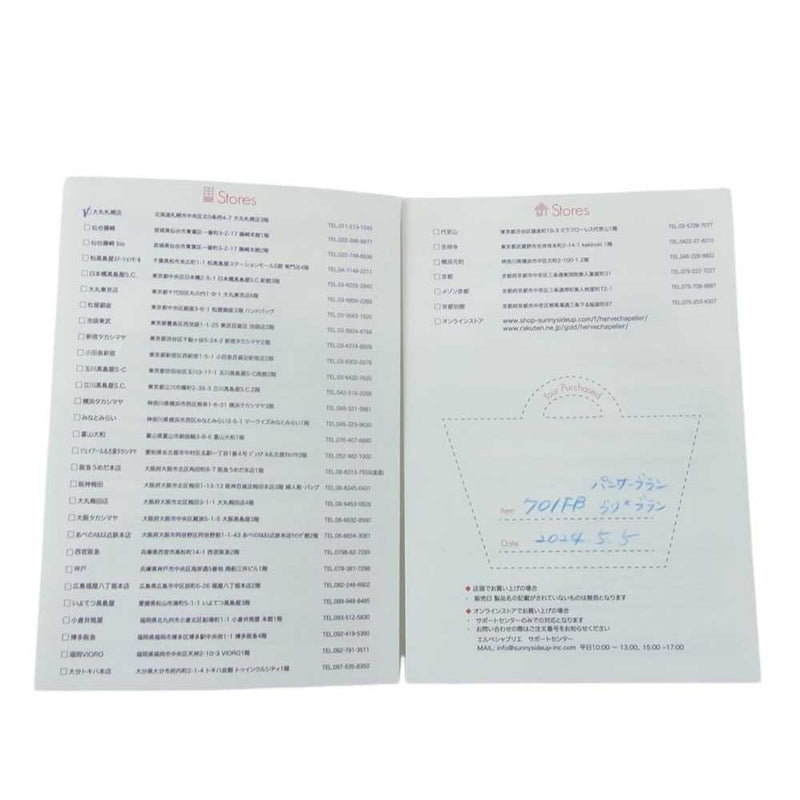 Stores
大丸札幌店 北海道札幌市中央区北5条西4-7 大丸札幌店3階 TEL.011-213-1245
仙台藤崎 宮城県仙台市青葉区一番町3-2-17 藤崎本館1階
仙台藤崎 bis 宮城県仙台市青葉区一番町3-2-17 藤崎本館2階
柏髙島屋ステーションモール 千葉県柏市末広町1-1 柏髙島屋ステーションモールS館 専門店4階 TEL.04-7148-2211
日本橋髙島屋S.C. 東京都中央区日本橋2-5-1 日本橋髙島屋S.C.新館3階
大丸東京店 東京都千代田区丸の内1-9-1 大丸東京店4階 TEL.03-6895-2289
松屋銀座 東京都中央区銀座3-6-1 ハンドバッグ
池袋東武 東京都豊島区西池袋1-1-25 東武百貨店 池袋店2階
新宿タカシマヤ 東京都渋谷区千駄ヶ谷5-24-2 新宿タカシマヤ2階
小田急新宿 東京都新宿区西新宿1-5-1 小田急百貨店新宿店2階
玉川髙島屋S・C 東京都世田谷区玉川3-17-1 玉川髙島屋S・C南館2階 TEL.03-6432-7620
立川髙島屋S.C. 東京都立川市曙町2-39-3 立川髙島屋S.C.2階 TEL.042-519-3258
横浜タカシマヤ 神奈川県横浜市西区南幸1-6-31 横浜タカシマヤ3階
みなとみらい 神奈川県横浜市西区みなとみらい3-5-1 マークイズみなとみらい1階
富山大和 富山県富山市総曲輪3-8-6 富山大和1階 TEL.076-407-6680
ジェイアール名古屋タカシマヤ 愛知県名古屋市中村区名駅一丁目1番4号 ジェイアール名古屋タカシマヤ3階 TEL.052-482-1000
阪急うめだ本店 大阪府大阪市北区角田町8-7 阪急うめだ本店1階
阪神梅田 大阪府大阪市北区梅田1-13-13 阪神百貨店梅田本店3階 婦人靴・バッグ TEL.06-6345-0431
大丸梅田店 大阪府大阪市北区梅田3-1-1 大丸梅田店4階 TEL.06-6453-0528
大阪タカシマヤ 大阪府大阪市中央区難波5-1-5 大阪タカシマヤ3階 TEL.06-6632-9580
あべのハルカス近鉄本店 大阪府大阪市阿倍野区阿倍野筋1-1-43 あべのハルカス近鉄本店ウイング館2階 TEL.06-6654-3061
西宮阪急 兵庫県西宮市高松町14-1 西宮阪急2階 TEL.0798-62-7265
神戸 兵庫県神戸市中央区海岸通3番地 商船三井ビル1階 TEL.078-381-7298
広島福屋八丁堀本店 広島県広島市中区胡町6-26 福屋八丁堀本店1階 TEL.082-246-6602
いよてつ髙島屋 愛媛県松山市湊町5-1-1 いよてつ髙島屋1階 TEL.089-948-8495
小倉井筒屋 福岡県北九州市小倉北区船場町1-1 小倉井筒屋 本館1階 TEL.093-512-5830
博多阪急 福岡県福岡市博多区博多駅中央街1-1 博多阪急4階 TEL.092-419-5390
福岡VIORO 福岡県福岡市中央区天神2-10-3 VIORO1階 TEL.092-791-3511
大分トキハ本店 大分県大分市府内町2-1-4 トキハ会館 トゥインクルシティ1階 TEL.097-535-8350
Stores
代官山 東京都渋谷区猿楽町19-3 ミラフローレス代官山1階 TEL.03-5728-7077
吉祥寺 東京都武蔵野市吉祥寺本町2-14-1 kakiinoki 1階 TEL.0422-27-8210
横浜元町 神奈川県横浜市中区元町2-100-1 2階
京都 TEL.075-222-7227
メゾン京都 TEL.075-708-6887
京都別館 TEL.075-253-6307
オンラインストア www.shop-sunnysideup.com/f/hervechapelier/
www.rakuten.ne.jp/gold/hervechapelier/
Your Purchased
パンサーブラン
Item 701FB グリ×ブラン
Date 2024.5.5
◆ 店頭でお買い上げの場合
販売日 製品名の記載がされていないものは無効となります
◆ オンラインストアでお買い上げの場合
・サポートセンターのみでの対応となります
・お問い合わせの際はご注文番号をお知らせください
エルベシャプリエ サポートセンター
MAIL: info@sunnysideup-inc.com 平日10:00 ー 13:00, 15:00 ー17:00